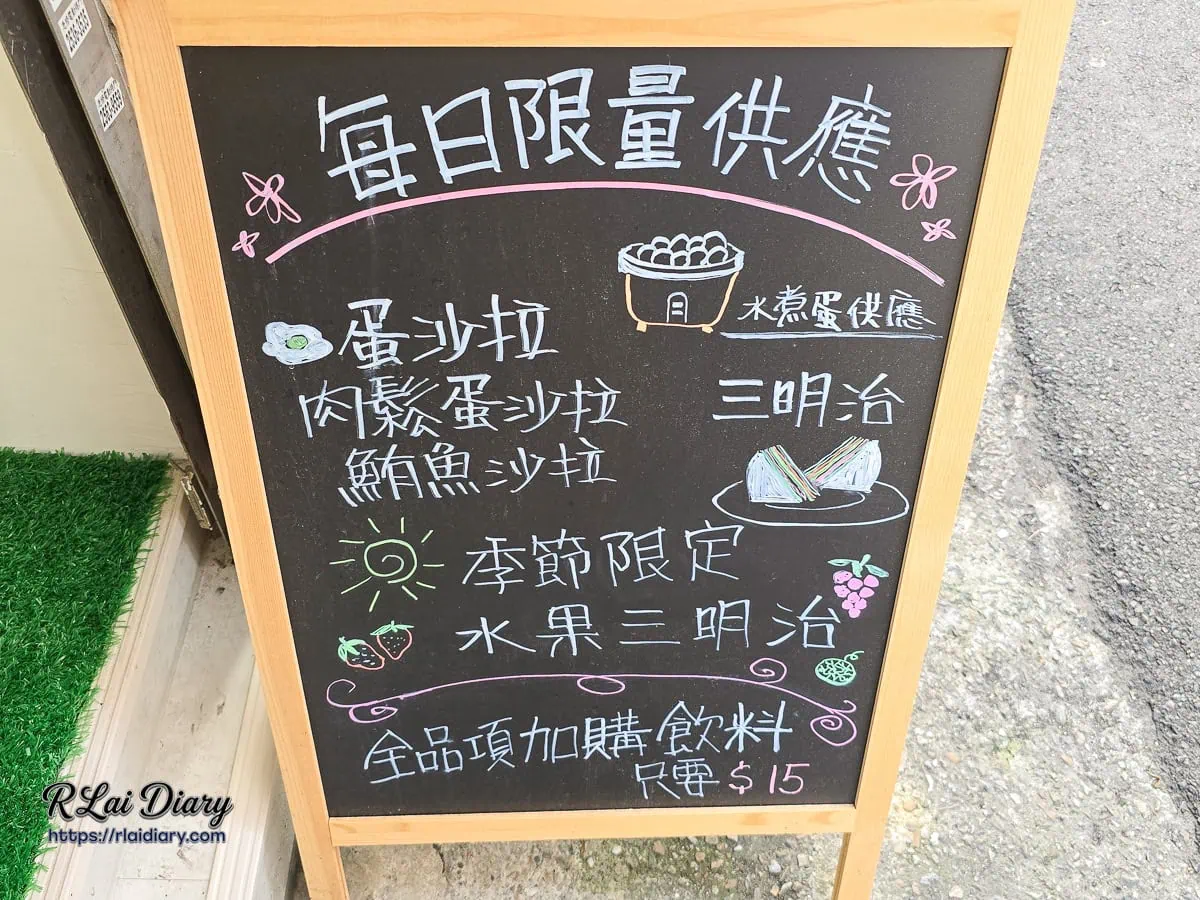 每日限量供應
水煮蛋供應
蛋沙拉
肉鬆蛋沙拉
三明治
鮪魚沙拉
季節限定
水果三明治
全品項加購飲料
只要$15
RLai Diary
https://rlaidiary.com